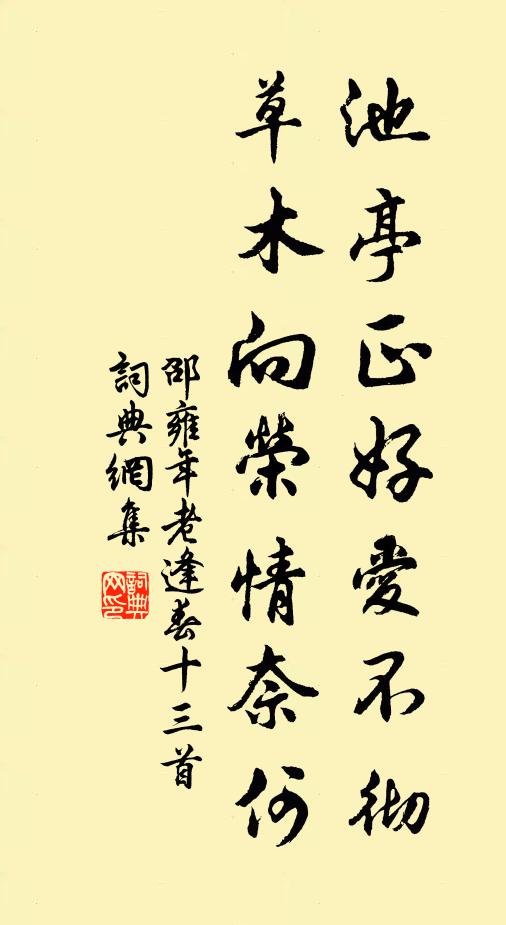 池亭正好愛不彻
草木向榮情奈何
邵雍年老逢春十三首
詞典網集
詞典网印